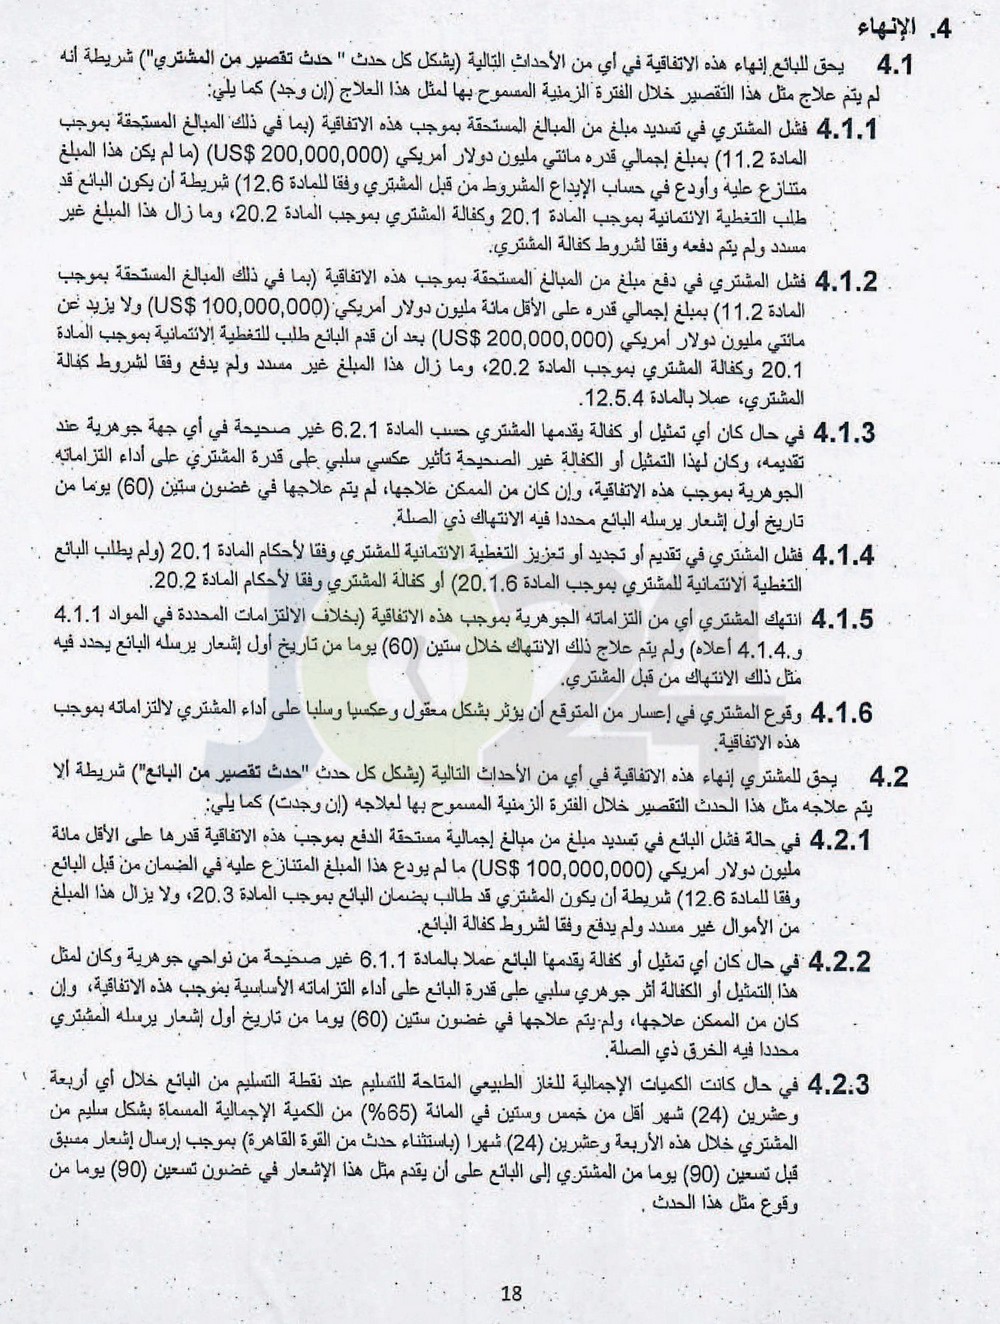 4. الإنهاء
4.1 يحق للبائع إنهاء هذه الاتفاقية في أي من الأحداث التالية (يشكل كل حدث " حدث تقصير من المشتري") شريطة أنه
لم يتم علاج مثل هذا التقصير خلال الفترة الزمنية المسموح بها لمثل هذا العلاج (إن وجد) كما يلي:
4.1.1 فشل المشتري في تسديد مبلغ من المبالغ المستحقة بموجب هذه الاتفاقية (بما في ذلك المبالغ المستحقة بموجب
المادة 11.2) بمبلغ إجمالي قدره مائتي مليون دولار أمريكي (US$ 200,000,000) (ما لم يكن هذا المبلغ
متنازع عليه وأودع في حساب الإيداع المشروط من قبل المشتري وفقا للمادة 12.6) شريطة أن يكون البائع قد
طلب التغطية الائتمانية بموجب المادة 20.1 وكفالة المشتري بموجب المادة 20.2، وما زال هذا المبلغ غير
مسدد ولم يتم دفعه وفقا لشروط كفالة المشتري.
4.1.2 فشل المشتري في دفع مبلغ من المبالغ المستحقة بموجب هذه الاتفاقية (بما في ذلك المبالغ المستحقة بموجب
المادة 11.2) بمبلغ إجمالي قدره على الأقل مائة مليون دولار أمريكي (US$ 100,000,000) ولا يزيد عن
مائتي مليون دولار أمريكي (US$ 200,000,000) بعد أن قدم البائع طلب للتغطية الائتمانية بموجب المادة
20.1 وكفالة المشتري بموجب المادة 20.2، وما زال هذا المبلغ غير مسدد ولم يدفع وفقا لشروط كفالة
المشتري، عملا بالمادة 12.5.4.
4.1.3 في حال كان أي تمثيل أو كفالة يقدمها المشتري حسب المادة 6.2.1 غير صحيحة في أي جهة جوهرية عند
تقديمه، وكان لهذا التمثيل أو الكفالة غير الصحيحة تأثير عكسي سلبي على قدرة المشتري على أداء التزاماته
الجوهرية بموجب هذه الاتفاقية، وإن كان من الممكن علاجها، لم يتم علاجها في غضون ستين (60) يوما من
تاريخ أول إشعار يرسله البائع محددا فيه الانتهاك ذي الصلة.
4.1.4 فشل المشتري في تقديم أو تجديد أو تعزيز التغطية الائتمانية للمشتري وفقا لأحكام المادة 20.1 (ولم يطلب البائع
التغطية الائتمانية للمشتري بموجب المادة 20.1.6) أو كفالة المشتري وفقا لأحكام المادة 20.2.
4.1.5 انتهك المشتري أي من التزاماته الجوهرية بموجب هذه الاتفاقية (بخلاف الالتزامات المحددة في المواد 4.1.1
و4.1.4 أعلاه) ولم يتم علاج ذلك الانتهاك خلال ستين (60) يوما من تاريخ أول إشعار يرسله البائع يحدد فيه
مثل ذلك الانتهاك من قبل المشتري.
4.1.6 وقوع المشتري في إعسار من المتوقع أن يؤثر بشكل معقول وعكسيا وسلبا على أداء المشتري لالتزاماته بموجب
هذه الاتفاقية.
4.2 يحق للمشتري إنهاء هذه الاتفاقية في أي من الأحداث التالية (يشكل كل حدث "حدث تقصير من البائع") شريطة ألا
يتم علاجه مثل هذا الحدث التقصير خلال الفترة الزمنية المسموح بها لعلاجه (إن وجدت) كما يلي:
4.2.1 في حالة فشل البائع في تسديد مبلغ من مبالغ إجمالية مستحقة الدفع بموجب هذه الاتفاقية قدرها على الأقل مائة
مليون دولار أمريكي (US$ 100,000,000) ما لم يودع هذا المبلغ المتنازع عليه في الضمان من قبل البائع
وفقا للمادة 12.6) شريطة أن يكون المشتري قد طالب بضمان البائع بموجب المادة 20.3، ولا يزال هذا المبلغ
من الأموال غير مسدد ولم يدفع وفقا لشروط كفالة البائع.
4.2.2 في حال كان أي تمثيل أو كفالة يقدمها البائع عملا بالمادة 6.1.1 غير صحيحة من نواحي جوهرية وكان لمثل
هذا التمثيل أو الكفالة أثر جوهري سلبي على قدرة البائع على أداء التزاماته الأساسية بموجب هذه الاتفاقية، وإن
كان من الممكن علاجها، ولم يتم علاجها في غضون ستين (60) يوما من تاريخ أول إشعار يرسله المشتري
محددا فيه الخرق ذي الصلة.
4.2.3 في حال كانت الكميات الإجمالية للغاز الطبيعي المتاحة للتسليم عند نقطة التسليم من البائع خلال أي أربعة
وعشرين (24) شهر أقل من خمس وستين في المائة (65%) من الكمية الإجمالية المسماة بشكل سليم من
المشتري خلال هذه الأربعة وعشرين (24) شهرا (باستثناء حدث من القوة القاهرة) بموجب إرسال إشعار مسبق
قبل تسعين (90) يوما من المشتري إلى البائع على أن يقدم مثل هذا الإشعار في غضون تسعين (90) يوما من
وقوع مثل هذا الحدث .
JO24
18